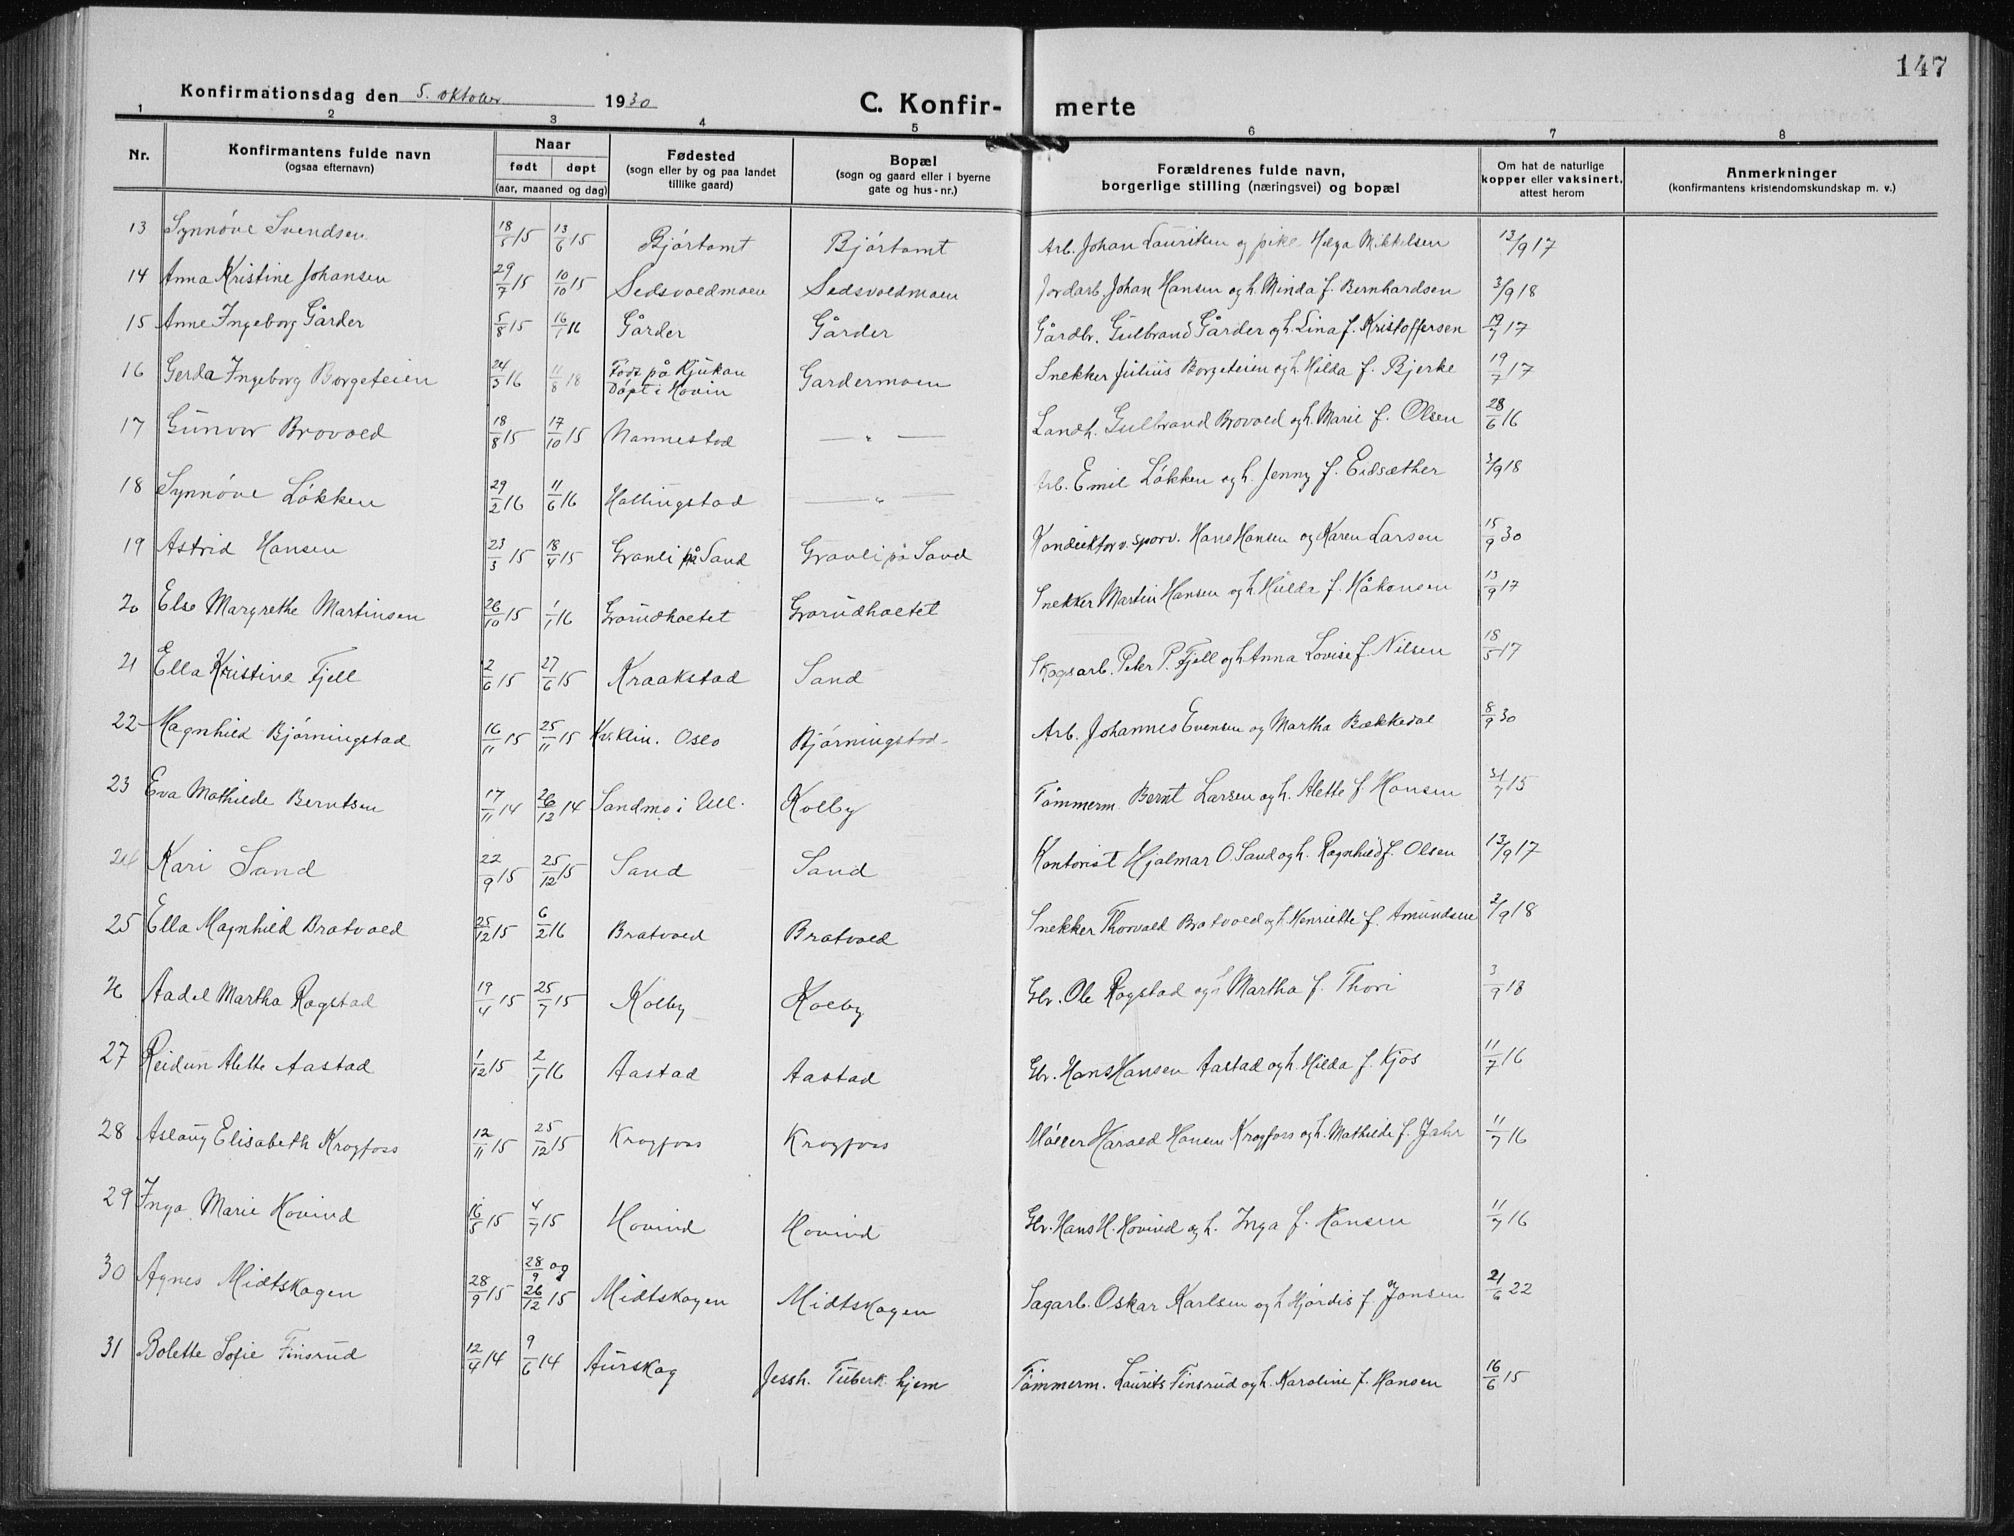 147
Konfirmationsdag den 5. oktober 1930
C. Konfir- merte
1 2 3 4 5 6 7 8
Nr. Konfirmantens fulde navn (ogsaa efternavn) Naar født døpt (aar, maaned og dag) Fødested (sogn eller by og paa landet tillike gaard) Bopæl (sogn og gaard eller i byerne gate og hus-nr.) Forældrenes fulde navn, borgerlige stilling (næringsvei) og bopæl Om hat de naturlige kopper eller vaksinert, attest herom Anmerkninger (konfirmantens kristendomskundskap m. v.)
13 Synnöve Svendsen 18/5 15 13/6 15 Björtomt Björtomt Arb. Johan Lauritsen og pike Helga Mikkelsen 13/9 17
14 Anna Kristine Johansen 29/7 15 10/10 15 Sedsvoldmoen Sedsvoldmoen Jordarb. Johan Hansen og h. Minda f. Bernhardsen 3/9 18
15 Anne Ingeborg Gårder 5/8 15 16/1 16 Gårder Gårder Gårdbr. Gulbrand Gårder og h. Lina f. Kristoffersen 19/7 17
16 Gerda Ingeborg Borgeteien 24/3 16 11/8 18 Født på Rjukan Döpt i Hovin Gardermoen Snekker Julius Borgeteien og h. Hilda f. Bjerke 19/7 17
17 Gunvor Brovold 18/8 15 17/10 15 Nannestad — " — Landh. Gulbrand Brovold og h. Marie f. Olsen 28/6 16
18 Synnöve Lökken 29/2 16 11/6 16 Hollingstad — " — Arb. Emil Lökken og h. Jenny f. Eidsæther 3/9 18
19 Astrid Hansen 23/3 15 18/4 15 Granli på Sand Granli på Sand Konduktör v. sporv. Hans Hansen og Karen Larsen 15/9 30
20 Else Margrethe Martinsen 26/10 15 1/1 16 Grorudholtet Grorudholtet Snekker Martin Hansen og h. Hulda f. Håkonsen 13/9 17
21 Ella Kristine Fjell 2/6 15 27/6 15 Kraakstad Sand Skogsarb. Peter P. Fjell og h. Anna Lovise f. Nilsen 18/5 17
22 Magnhild Bjørningstad 16/11 15 25/11 15 Kv.klin. Oslo Bjørningstad Arb. Johannes Evensen og Martha Bækkedal 8/9 30
23 Eva Mathilde Berntsen 17/11 14 26/12 14 Sandmo i Ull. Kolby Tömmerm. Bernt Larsen og h. Alette f. Hansen 31/7 15
24 Kari Sand 22/9 15 25/12 15 Sand Sand Kontorist Hjalmar O. Sand og h. Ragnhild f. Olsen 13/9 17
25 Ella Magnhild Bratvold 25/12 15 6/2 16 Bratvold Bratvold Snekker Thorvald Bratvold og h. Henriette f. Amundsen 2/9 18
26 Aadel Martha Rogstad 19/4 15 25/7 15 Kolby Kolby Gbr. Ole Rogstad og h. Martha f. Thori 3/9 18
27 Reidun Alette Aastad 1/12 15 2/1 16 Aastad Aastad Gbr. Hans Hansen Aastad og h. Hilda f. Kjos 11/7 16
28 Aslaug Elisabeth Krogfoss 12/11 15 25/12 15 Krogfoss Krogfoss Möller Harald Hansen Krogfoss og h. Mathilde f. Jahr 11/7 16
29 Inga Marie Hovind 16/5 15 4/7 15 Hovind Hovind Gbr. Hans H. Hovind og h. Inga f. Hansen 11/7 16
30 Agnes Midtskogen 28/9 15 28/9 og 26/12 15 Midtskogen Midtskogen Sagarb. Oskar Karlsen og h. Hjördis f. Jonsen 21/6 22
31 Bolette Sofie Finsrud 12/4 14 9/6 14 Aurskog Jessh. Tuberk. hjem Tömmerm. Laurits Finsrud og h. Karoline f. Hansen 16/6 15